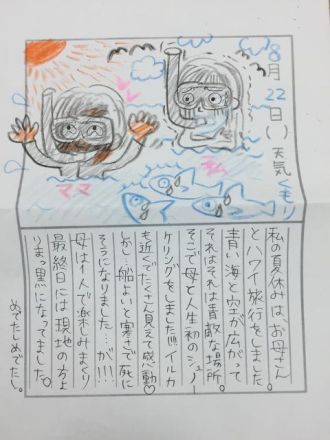 8月22日( ) 天気 くもり
私
ママ
私の夏休みは、お母さん
とハワイ旅行をしました。
青い海と空が広がって
それはそれは素敵な場所。
そこで母と人生初のシュノー
ケリングをしました!!! イルカ
も近くでたくさん見えて感動♡
しかし…船よいと寒さで死に
そうになりました…が!!!
母は1人で楽しみまくり
最終日には現地の方より
まっ黒になってました。
めでたしめでたし。